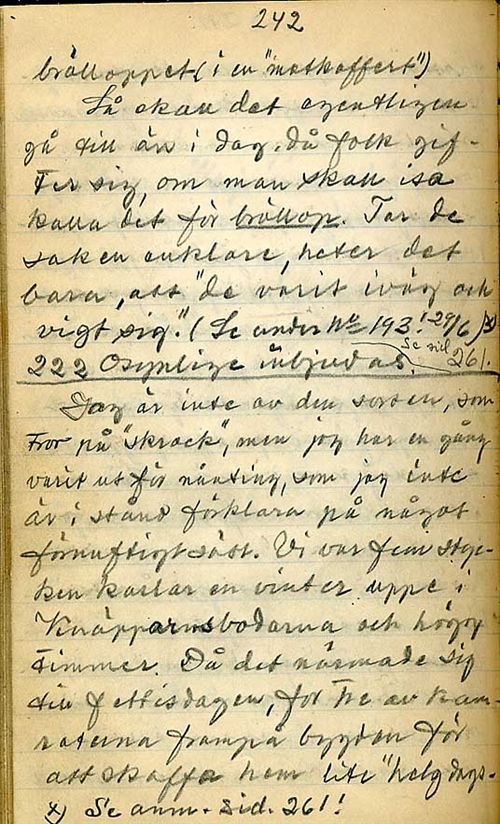 242
brölloppet (i en "matkoffert")
Så skall det egentligen
gå till än i dag, då folk gif-
ter sig, om man skall isa
kalla det för bröllop. Tar de
saken enklare, heter det
bara, att "de varit iväg och
vigt sig." (Se under No 193! 29/6 33)
Se sid 261.
222 Osynlige inbjudas.
Jag är inte av den sorten, som
tror på "skrock", men jag har en gång
varit ut för nånting, som jag inte
är i stånd förklara på något
förnuftigt sätt. Vi var fem styc-
ken karlar en vinter uppe i
Knäpparnsbodarna och högg
timmer. Då det närmade sig
till fettisdagen, for tre av kam-
raterna frampå bygden för
att skaffa hem lite "helgdags-
x) Se anm. sid. 261!